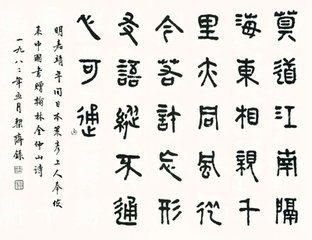 莫道江南隔
海東相親千
里亦同風從
今若許忘形
友語縱不通
心可通
明嘉靖年間日本策彥上人奉使
來中國書贈翰林金仲山詩
一九八二年五月 錄